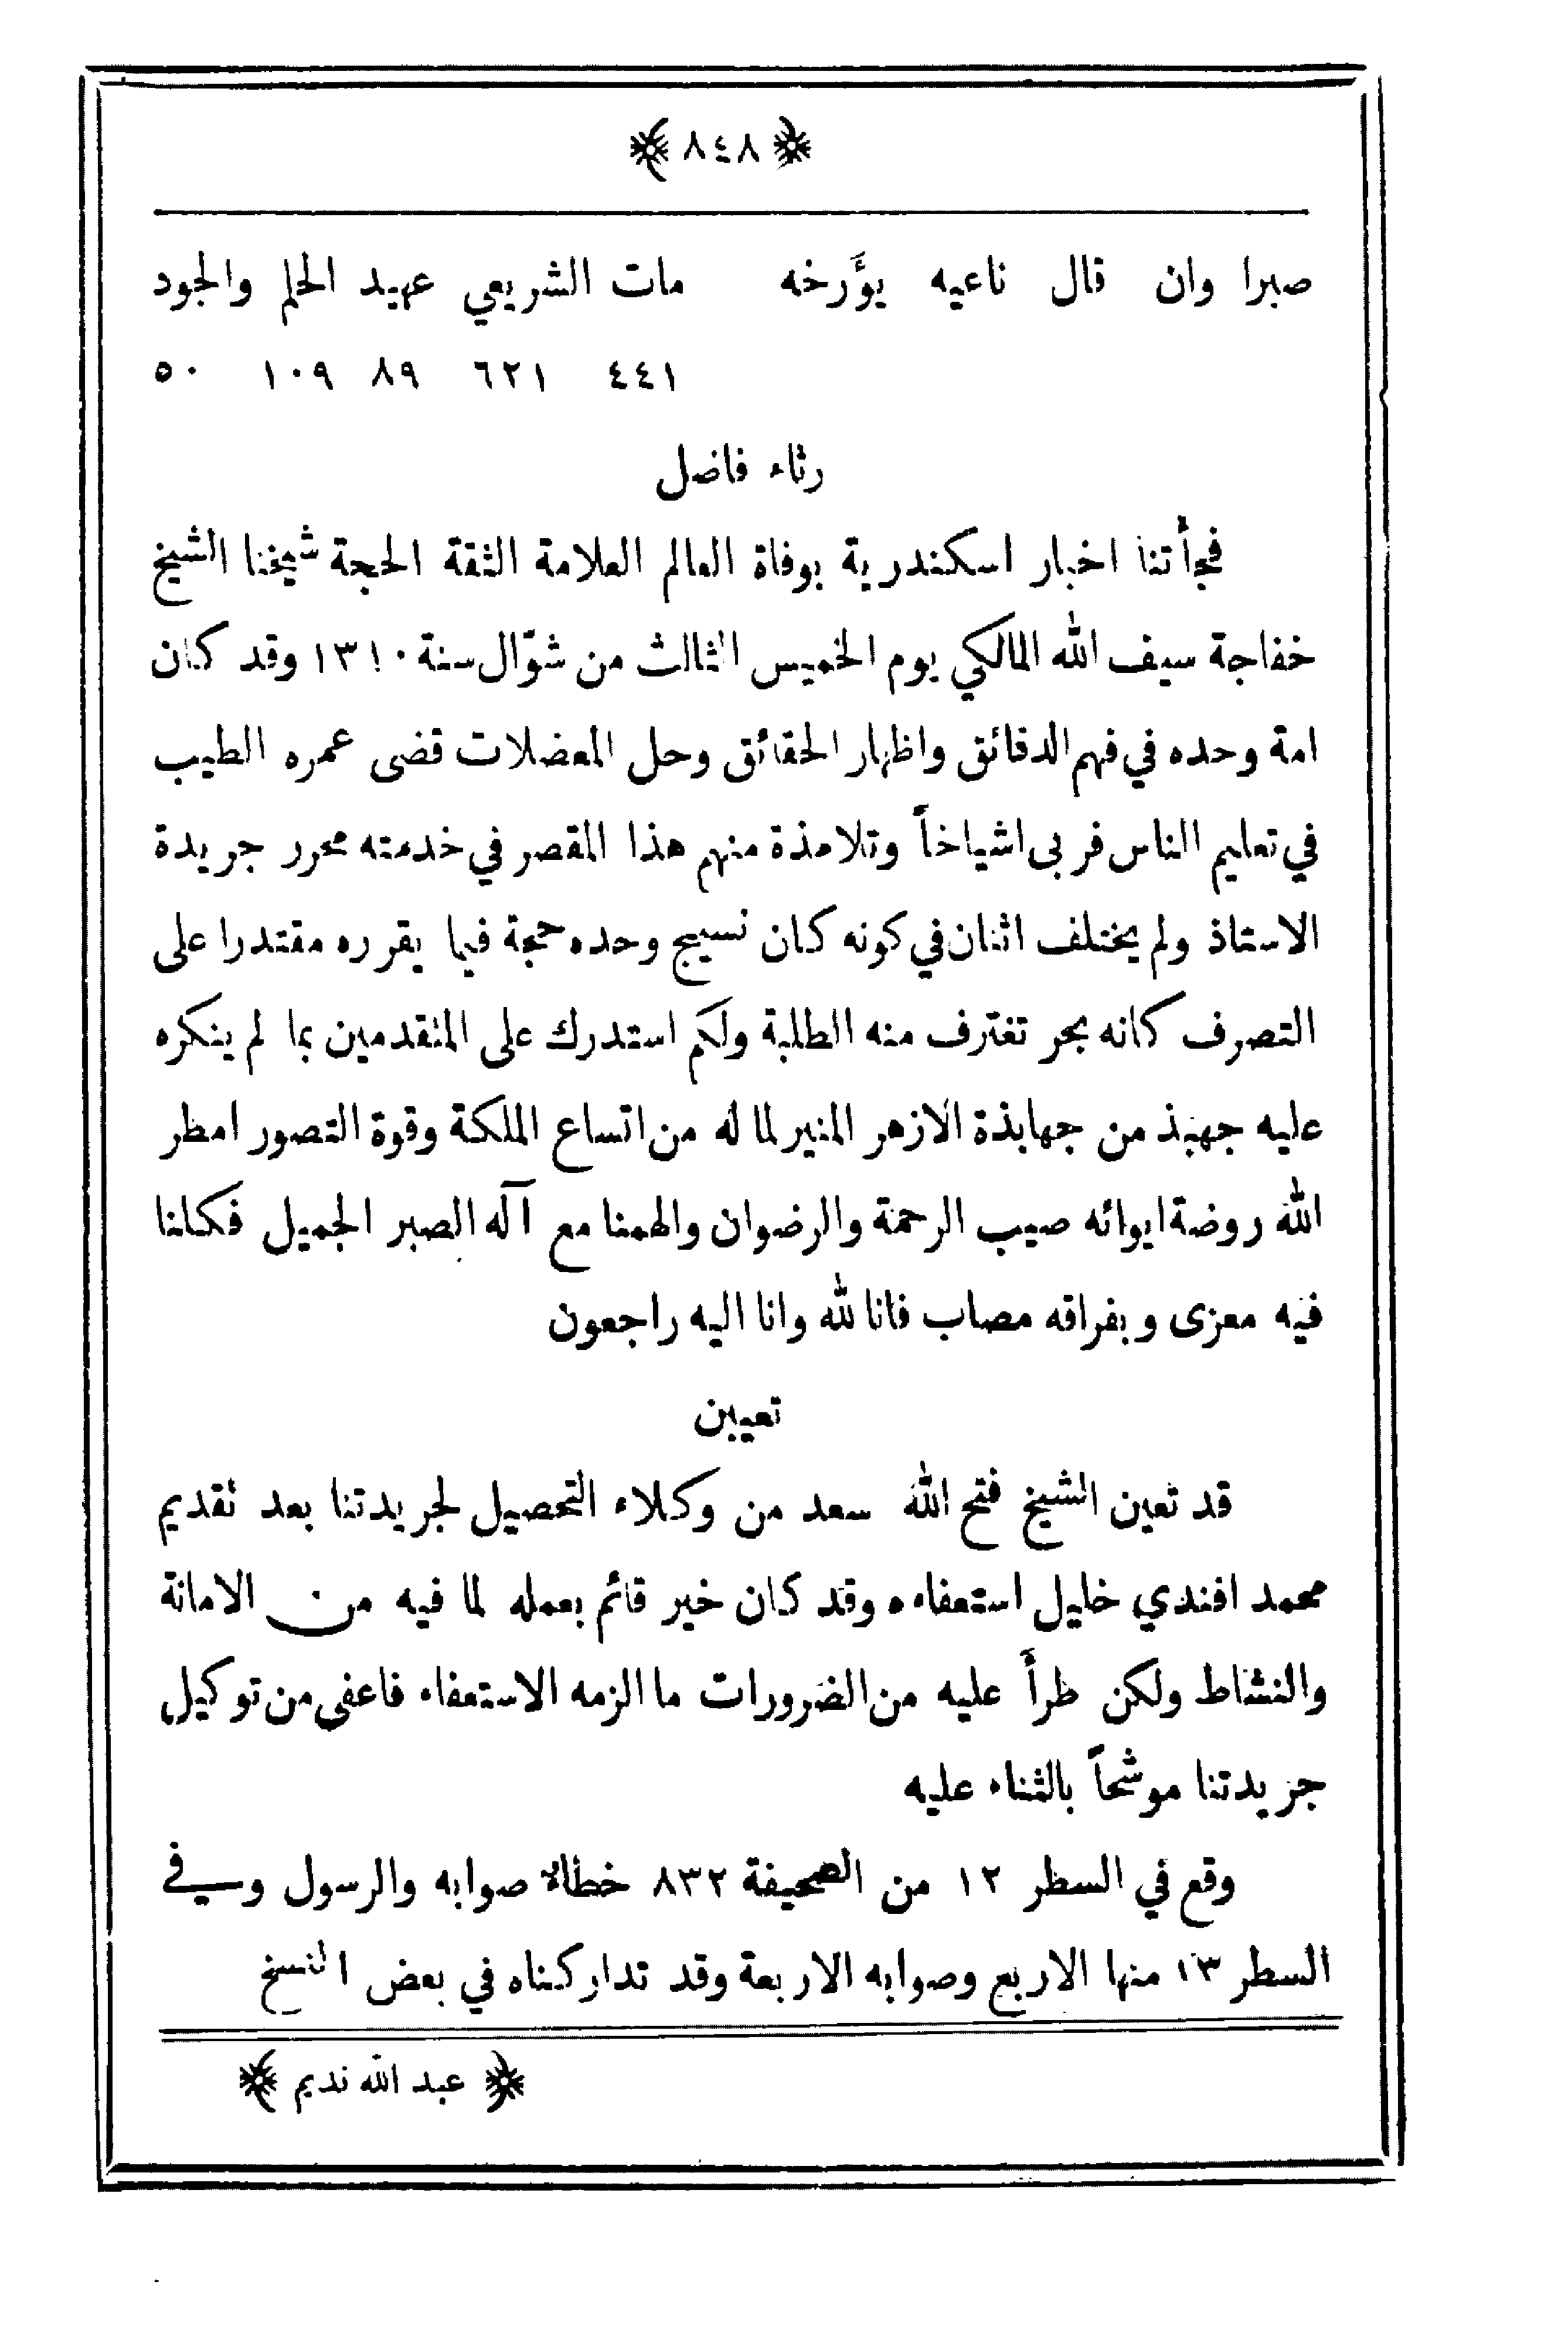 ﴿ ٨٤٨ ﴾
صبرا وان قال ناعيه يؤَرخه مات الشريعي عهيد الحلم والجود
٤٤١ ٦٢١ ٨٩ ١٠٩ ٥٠
رثاء فاضل
فجأتنا اخبار اسكندرية بوفاة العالم العلامة الثقة الحجة شيخنا الشيخ
خفاجة سيف الله المالكي يوم الخميس الثالث من شوّال سنة ١٣١٠ وقد كان
امة وحده في فهم الدقائق واظهار الحقائق وحل المعضلات قضى عمره الطيب
في تعليم الناس فربى اشياخاً وتلامذة منهم هذا المقصر في خدمته محرر جريدة
الاستاذ ولم يختلف اثنان في كونه كان نسيج وحده حجة فيما يقرره مقتدرا على
التصرف كانه بحر تغترف منه الطلبة ولكم استدرك على المتقدمين بما لم ينكره
عليه جهبذ من جهابذة الازهر المنير لما له من اتساع الملكة وقوة التصور امطر
الله روضة ايوائه صيب الرحمة والرضوان والهمنا مع آله الصبر الجميل فكلنا
فيه معزى وبفراقه مصاب فانا لله وانا اليه راجعون
تعيين
قد تعين الشيخ فتح الله سعد من وكلاء التحصيل لجريدتنا بعد تقديم
محمد افندي خليل استعفاءه وقد كان خير قائم بعمله لما فيه من الامانة
والنشاط ولكن طرأَ عليه من الضرورات ما الزمه الاستعفاء فاعفي من توكيل
جريدتنا موشحاً بالثناء عليه
وقع في السطر ١٢ من الصحيفة ٨٣٢ صوابه والرسول وفي
السطر ١٣ منها الاربع وصوابه الاربعة وقد تداركناه في بعض النسخ
﴿ عبد الله نديم ﴾